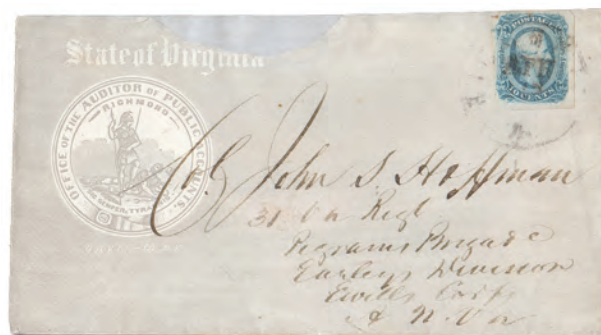 State of Virginia
OFFICE OF THE AUDITOR OF PUBLIC ACCOUNTS.
RICHMOND
SIC SEMPER TYRANNIS
POSTAGE
CENTS
Col John S Hoffman
31 Va Regt
Pegrams Brigade
Earlys Division
Ewells Corps
A N. Va